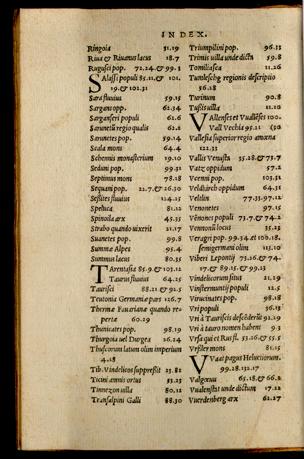 INDEX.
Ringoia 31.19
Riua & Riuanus lacus 18.7
Rugusci pop. 72.24. & 99.2
Salassi populi 85.21. & 101.
19. & 102.31
Sara fluuius 59.15
Sargans opp. 62.34
Sarganseri populi 62.6
Sarunetũ regio qualis 62.8
Sarunetes pop. 59.14
Scala mons 64.4
Schennis monasterium 19.10
Seduni pop. 99.31
Septimus mons 78.18
Sequani pop. 22.7. & 26.30
Sessites fluuius 114.15
Speluca 81.12
Spinoila arx 45.35
Strabo quando uixerit 21.17
Suanetes pop. 99.8
Summæ Alpes 95.4
Summus lacus 80.35
Tarentasia 85.9. & 101.12
Taurus fluuius 64.25
Taurisci 88.21 & 92.5
Teutonia Germaniæ pars 126.7
Thermæ Fauarianæ quando re-
pertæ 60.29
Thunicates pop. 98.19
Thurgoia uel Durgea 26.24
Thuscorum latum olim imperium
4.18
Tib. Vindelicos suppressit 23.82
Ticini amnis ortus 53.23
Tinnezon uilla 80.12
Transalpini Galli 88.30
Triumpilini pop. 96.33
Trimis uilla unde dicta 59.8
Tomiliasca 11.26
Tumleschg regionis descriptio
56.28
Turinum 90.8
Tussis uilla 11.10
Vallenses et Vuallises 100.
Vall Vechia 95.21
Vallesia superior regio amœna
122.33
Vallis Venusta 35.28. & 73.7
Vatz oppidum 57.2
Veenni pop. 103.31
Veldkirch oppidum 64.31
Veltlin 77.33. 97.12
Venonetes 97.15
Vẽnones populi 73.7. & 74.2
Vennonũ locus 35.23
Veragri pop. 99.34. et 100.18.
semigermani olim 113.10
Viberi Lepontij 73.26. & 74.
17. & 89.15. & 99.23
Vindelicorum situs 21.19
Vinstermuntij populi 12.5
Virucinates pop. 98.18
Viri populi 36.13
Viri à Tauriscis descẽderũt 92.29
Viri à tauro nomen habent 9.3
Vrsa qui et Russ fl. 53.26. & 55.5
Vrsler mons 81.15
Vuaat pagus Heluetiorum.
99.28. 132.17
Valgoeuu 65.18. & 66.2
Vualenstat unde dictum 17.12
Vuerdenberg arx 62.27